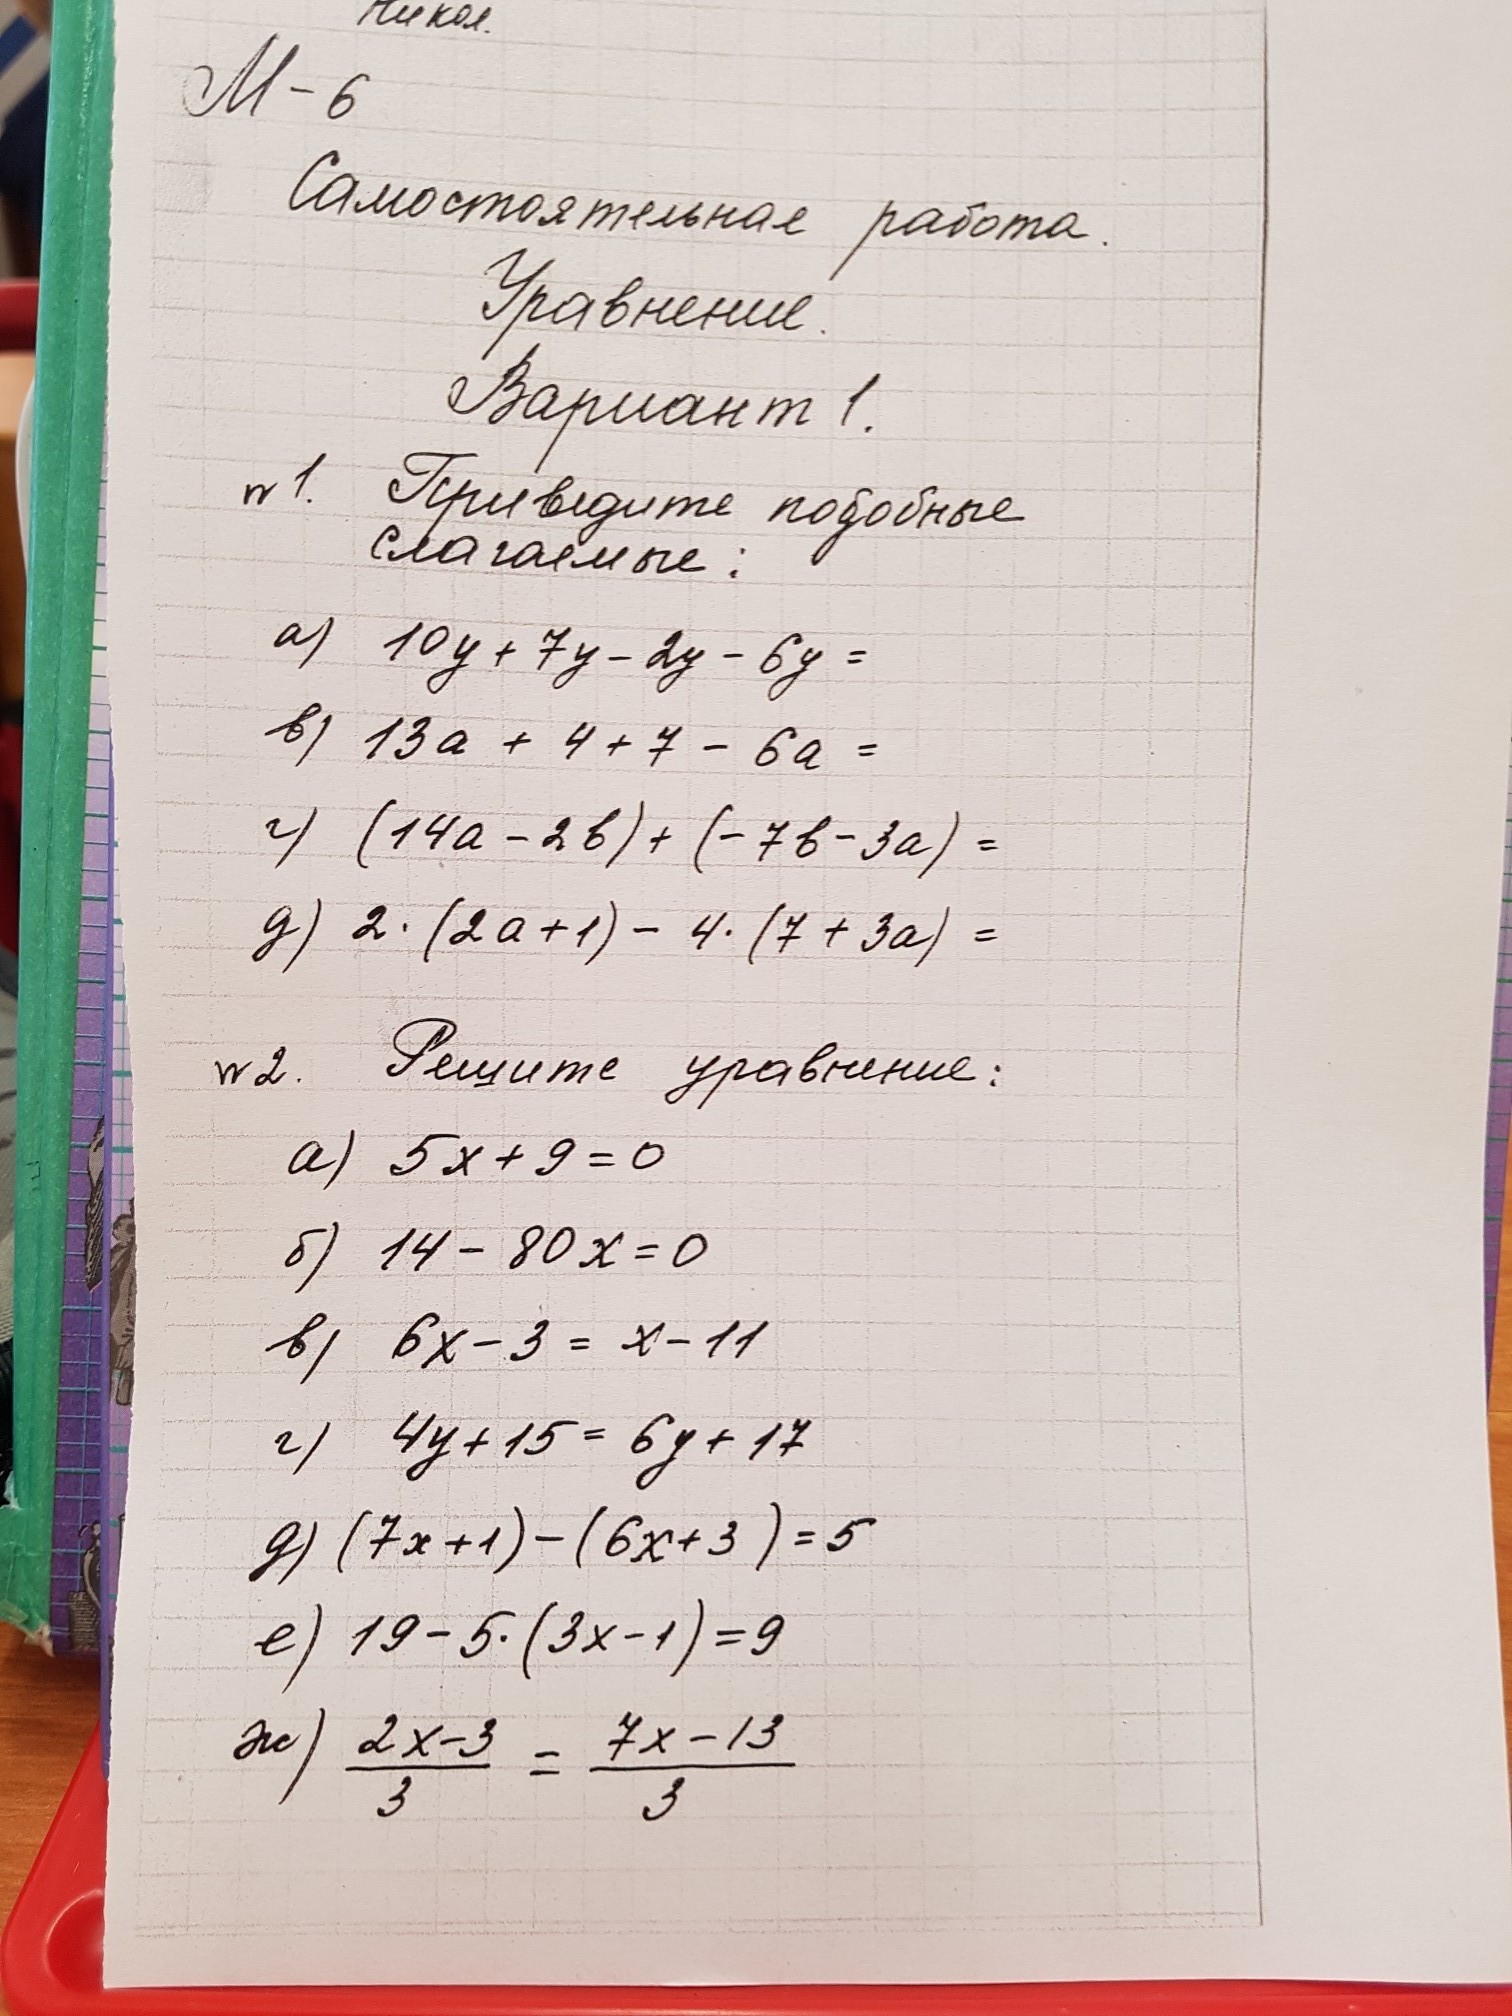 Никол.
М-6
Самостоятельная работа.
Уравнение.
Вариант 1.
№1. Приведите подобные
слагаемые:
а) 10y + 7y - 2y - 6y =
в) 13a + 4 + 7 - 6a =
г) (14a - 2b) + (-7b - 3a) =
д) 2·(2a + 1) - 4·(7 + 3a) =
№2. Решите уравнение:
а) 5x + 9 = 0
б) 14 - 80x = 0
в) 6x - 3 = x - 11
г) 4y + 15 = 6y + 17
д) (7x + 1) - (6x + 3) = 5
е) 19 - 5·(3x - 1) = 9
ж) 2x-3 / 3 = 7x-13 / 3